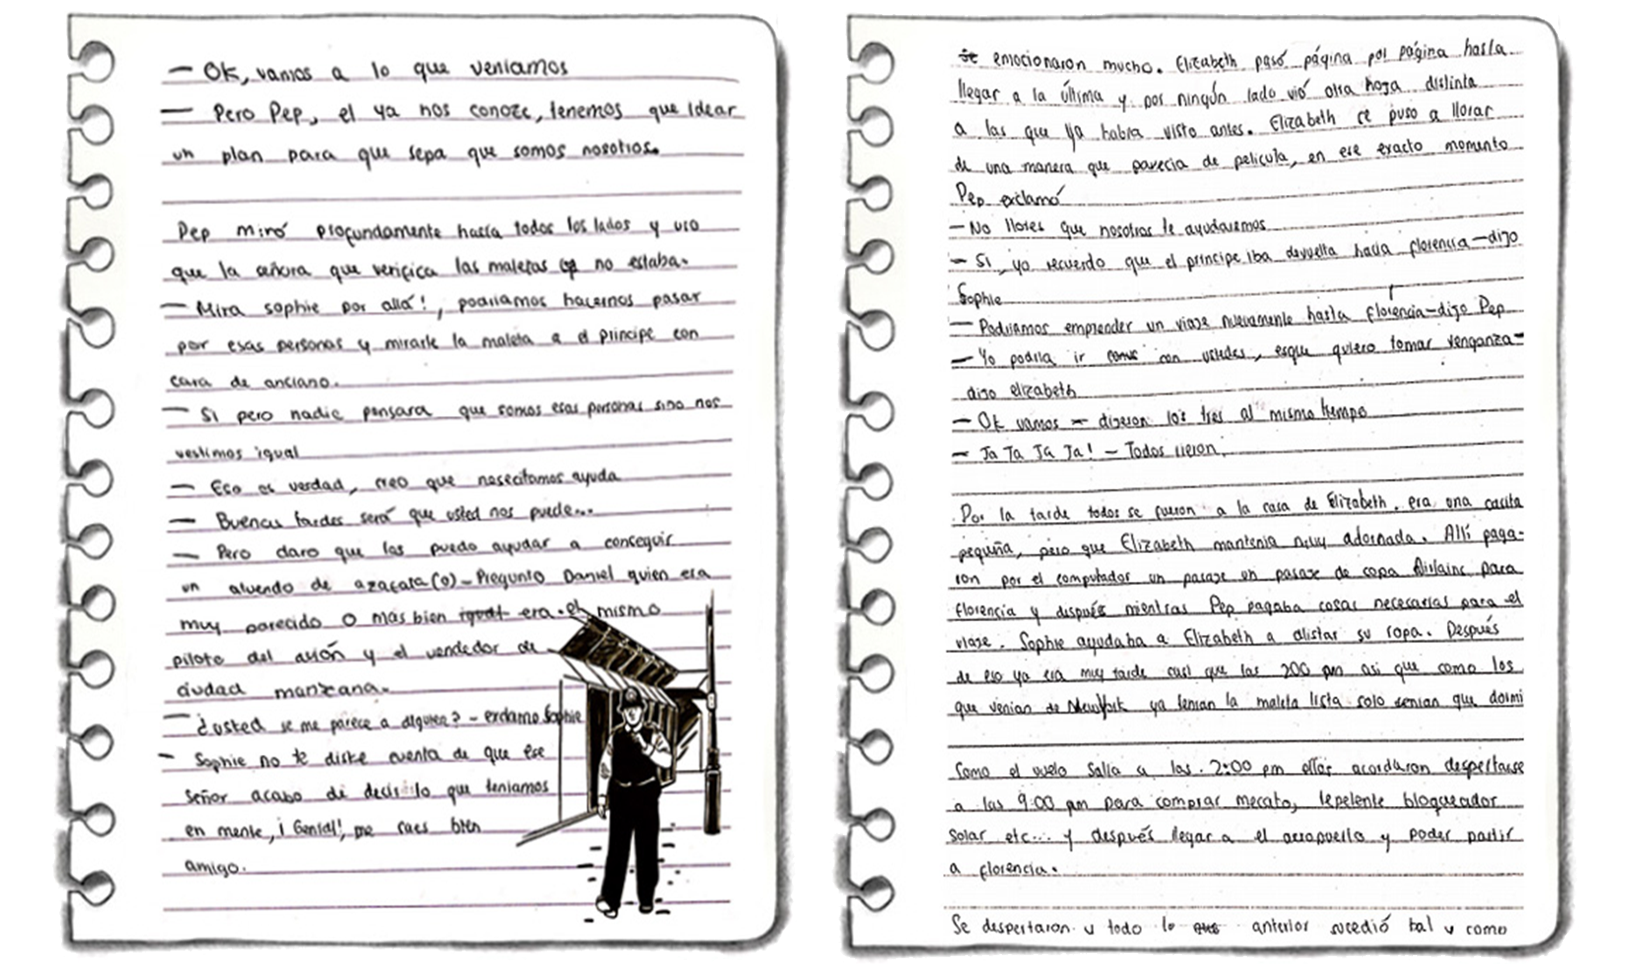 — Ok, vamos a lo que veniamos
— Pero Pep, el ya nos conoze, tenemos que idear
un plan para que sepa que somos nosotros.
Pep miró profundamente hacia todos los lados y vio
que la señora que verifica las maletas no estaba.
— Mira sophie por allá!, podriamos hacernos pasar
por esas personas y mirarle la maleta a el principe con
cara de anciano.
— Si pero nadie pensara que somos esas personas sino nos
vestimos igual
— Eso es verdad, creo que nesecitamos ayuda
— Buenas tardes será que usted nos puede...
— Pero claro que los puedo ayudar a conseguir
un atuendo de azafata(o) – Pregunto Daniel quien era
muy parecido o más bien igual era el mismo
piloto del avión y el vendedor de
ciudad manzana.
— ¿usted se me parece a alguien? – exclamo Sophie
– Sophie no te diste cuenta de que ese
señor acabo de decir lo que teniamos
en mente, ¡Genial!, me caes bien
amigo.
se emocionaron mucho. Elizabeth pasó página por página hasta
llegar a la última y por ningún lado vió otra hoja distinta
a las que ya habia visto antes. Elizabeth se puso a llorar
de una manera que parecia de pelicula, en ese exacto momento
Pep exclamó
— No llores que nosotros te ayudaremos
— Si, yo recuerdo que el principe iba devuelta hacia florencia — dijo
Sophie
— Podriamos emprender un viaje nuevamente hasta florencia – dijo Pep
— Yo podria ir con ustedes, esque quiero tomar venganza –
dijo elizabeth
— Ok vamos — dijeron los tres al mismo tiempo
— Ja Ja Ja Ja! — Todos rieron.
Por la tarde todos se fueron a la casa de Elizabeth, era una casita
pequeña, pero que Elizabeth mantenia muy adornada. Allí paga-
ron por el computador un pasaje en pasaje de copa Airlains para
florencia y después mientras Pep pagaba cosas necesarias para el
viaje. Sophie ayudaba a Elizabeth a alistar su ropa. Después
de eso ya era muy tarde casi que las 200 pm asi que como los
que venian de NewYork ya tenian la maleta lista solo tenian que dormi
Como el vuelo salia a las 2:00 pm ellos acordaron despertarse
a las 9:00 am para comprar mecato, repelente bloqueador
solar etc... y después llegar a el aeropuerto y poder partir
a florencia.
Se despertaron y todo lo anterior sucedió tal y como